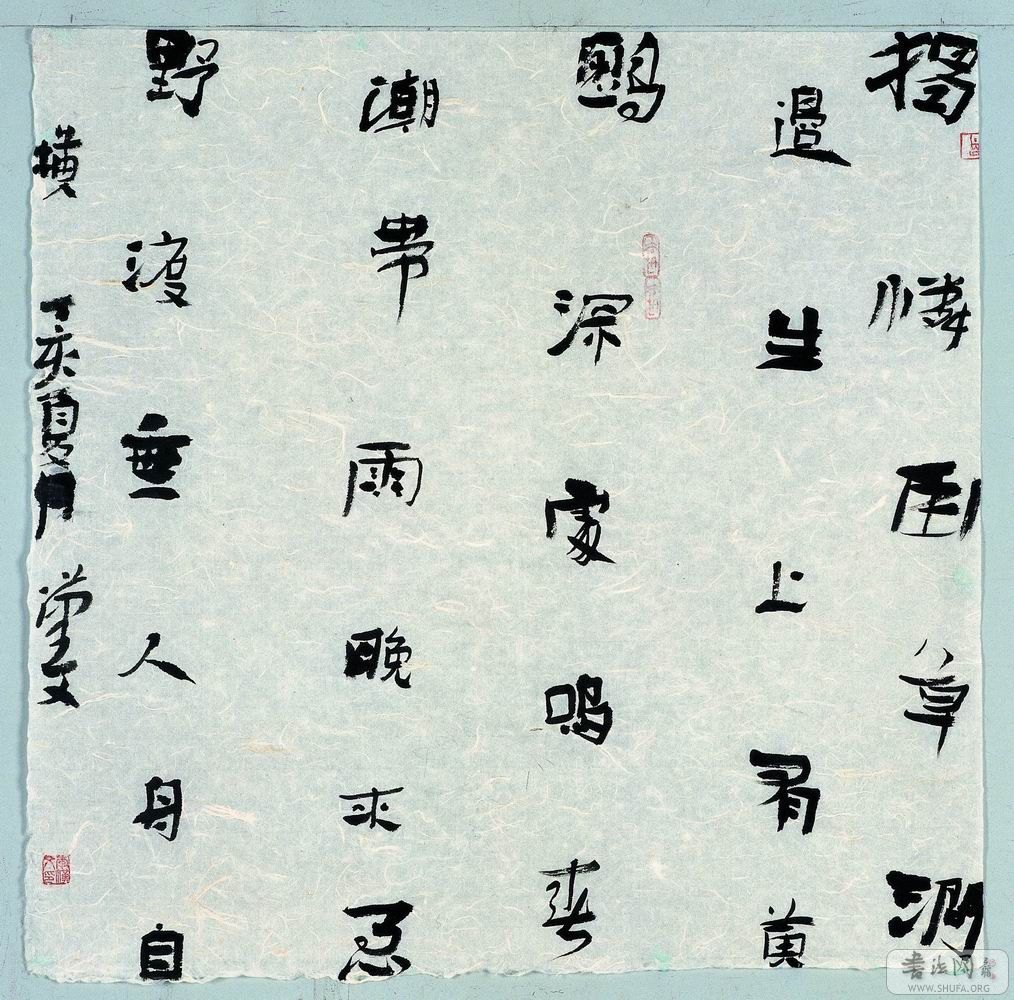 獨憐幽草澗
邊生上有黃
鸝深處鳴春
潮帶雨晚來急
野渡無人舟自
橫 丁亥夏月 漢文
書法网
WWW.SHUFA.ORG